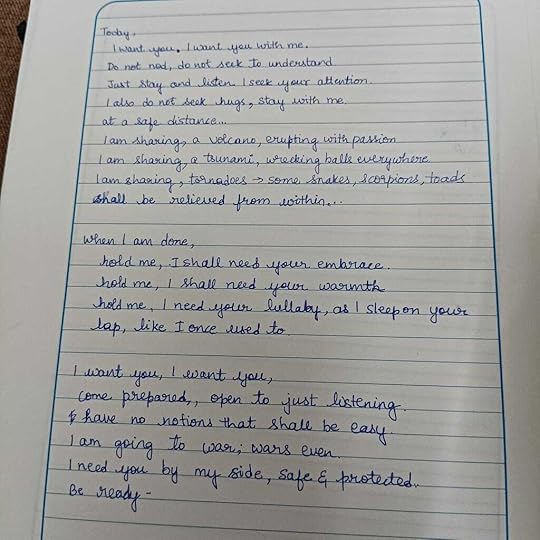 Today,
I want you. I want you with me.
Do not nod, do not seek to understand
Just stay and listen. I seek your attention.
I also do not seek hugs, stay with me.
at a safe distance...
I am sharing, a volcano, erupting with passion
I am sharing, a tsunami, wrecking balls everywhere.
I am sharing, tornadoes → some snakes, scorpions, toads
shall be relieved from within...
When I am done,
hold me, I shall need your embrace.
hold me, I shall need your warmth
hold me, I need your lullaby, as I sleep on your
lap, like I once used to.
I want you, I want you,
come prepared, open to just listening.
& have no notions that shall be easy.
I am going to war; wars even.
I need you by my side, safe & protected.
Be ready -